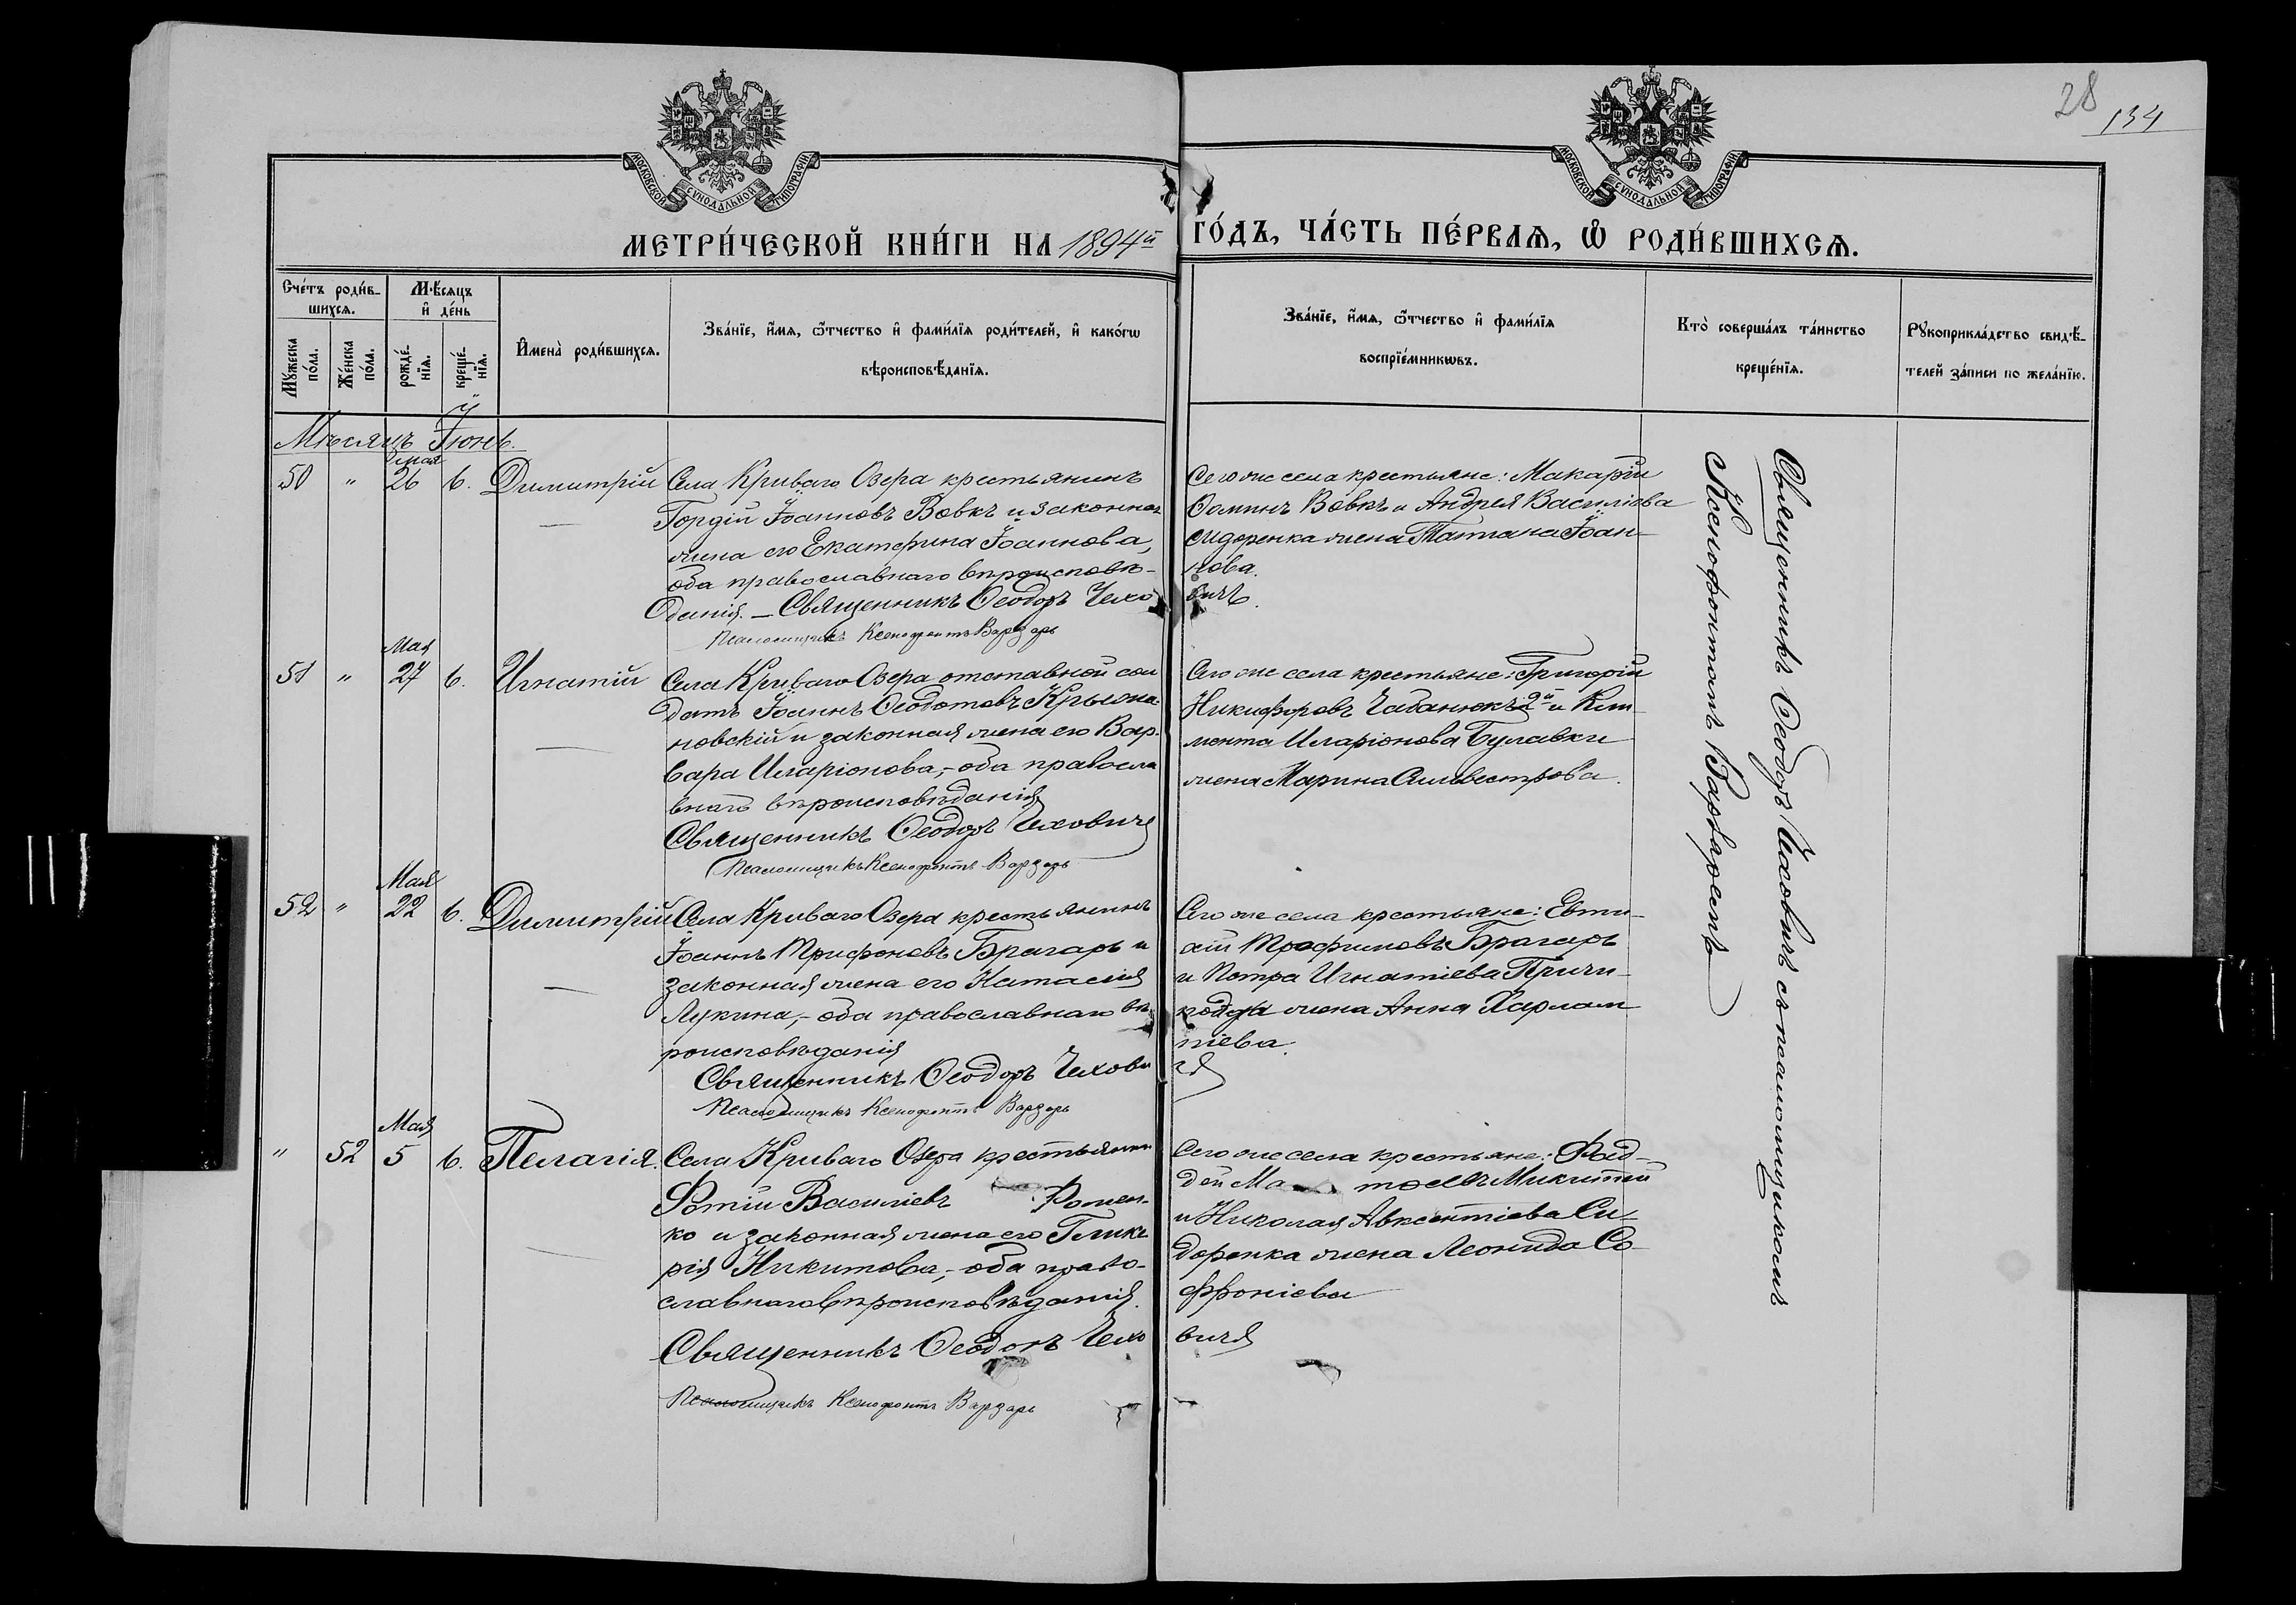 28
134
МОСКОВСКОЙ СУНОДАЛЬНОЙ ТИПОГРАФІИ
МОСКОВСКОЙ СУНОДАЛЬНОЙ ТИПОГРАФІИ
МЕТРИ́ЧЕСКОЙ КНИ́ГИ НА 1894й ГО́ДЪ, ЧА́СТЬ ПЕ́РВАѦ, Ѡ҆ РОДИ́ВШИХСѦ.
Сче́тъ роди́в-
шихсѧ.
Мѣ́сѧцъ
и҆ де́нь
Мꙋ́жеска
по́ла.
Же́нска
по́ла.
рожде́-
нїѧ.
креще́-
нїѧ.
И҆мена̀ роди́вшихсѧ.
Зва́нїе, и҆́мѧ, ѻ҆́тчество и҆ фами́лїѧ роди́телей, и҆ како́гѡ
вѣроисповѣ́данїѧ.
Зва́нїе, и҆́мѧ, ѻ҆́тчество и҆ фами́лїѧ
воспрїе́мникѡвъ.
Кто̀ соверша́лъ та́инство
креще́нїѧ.
Рꙋкоприкла́дство свидѣ́-
телей за́писи по жела́нїю.
Мѣсяцъ Іюнь.
50 " мая 26 6. Димитрій
Села Криваго Озера крестьянинъ
Гордій Іоанновъ Вовкъ и законная
жена его Екатерина Іоаннова,
оба православнаго вѣроисповѣ-
данія. — Священникъ Ѳеодоръ Чехо
вичъ.
Псаломщикъ Ксенофонтъ Варзарь
Сего же села крестьяне: Макарій
Ѳоминъ Вовкъ и Андрея Василіева
Сидоренка жена Татіана Іоан-
нова.
51 " Мая 27 6. Игнатій
Села Криваго Озера отставной сол
датъ Іоаннъ Ѳеодотовъ
новскій и законная жена его Вар-
вара Иларіонова, - оба правосла
внаго вѣроисповѣданія
Священникъ Ѳеодоръ Чеховичъ
Псаломщикъ Ксенофонтъ Варзарь
Сего же села крестьяне: Григорій
Никифоровъ Чабанюкъ 2й и Кли
мента Иларіонова Булавки
жена Марина Сильвестрова.
52 " Мая 22 6. Димитрій
Села Криваго Озера крестьянинъ
Іоаннъ Трифоновъ Брагарь и
законная жена его Наталія
Лукина, - оба православнаго вѣ
роисповѣданія
Священникъ Ѳеодоръ Чехови
чъ
Псаломщикъ Ксенофонтъ Варзарь
Сего же села крестьяне: Евти-
хій Трофимовъ Брагарь
и Петра Игнатіева
жена Анна Харлам
піева.
" 52 Мая 5 6. Пелагія.
Села Криваго Озера крестьянинъ
Фотій Василіевъ Ромен-
ко и законная жена его Глике
рія Никитова, - оба право-
славнаго вѣроисповѣданія.
Священникъ Ѳеодоръ Чехо
вичъ
Псаломщикъ Ксенофонтъ Варзарь
Сего же села крестьяне: Фад-
дей
и Николая Авксентіева Си-
доренка жена Леонида Со-
фроніева
Священникъ Ѳеодоръ Чеховичъ съ псаломщикомъ
Ксенофонтомъ Варзаремъ